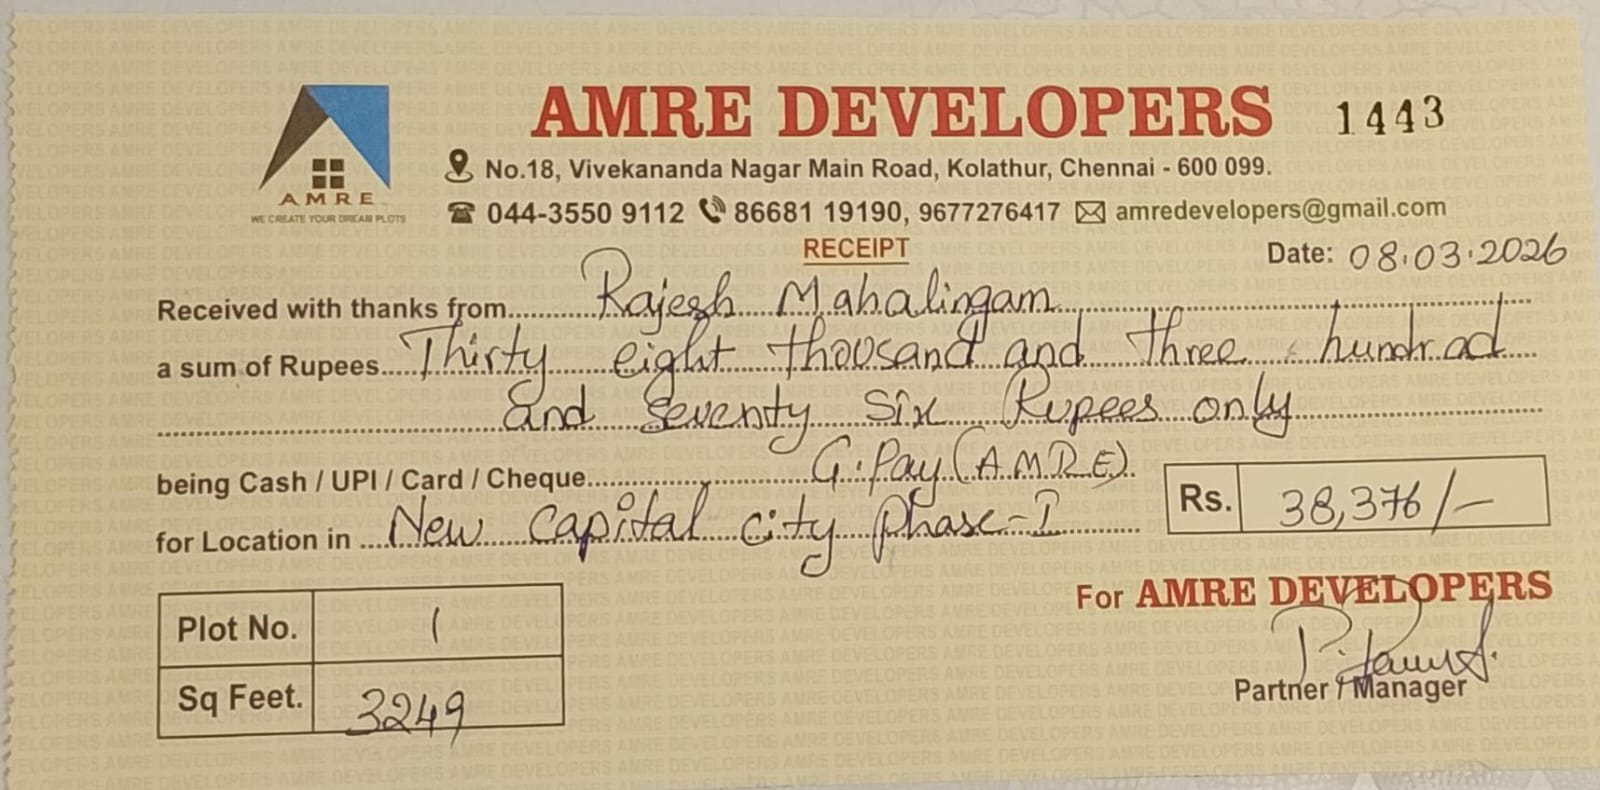 AMRE DEVELOPERS 1443
AMRE
WE CREATE YOUR DREAM PLOTS
No.18, Vivekananda Nagar Main Road, Kolathur, Chennai - 600 099.
044-3550 9112 86681 19190, 9677276417 amredevelopers@gmail.com
RECEIPT
Date: 08.03.2026
Received with thanks from Rajesh Mahalingam
a sum of Rupees Thirty eight thousand and three hundrad
and seventy six Rupees only
being Cash / UPI / Card / Cheque G.Pay (A.M.R.E).
Rs. 38,376/-
for Location in New Capital city Phase-I
Plot No. 1
Sq Feet. 3249
For AMRE DEVELOPERS
Partner / Manager